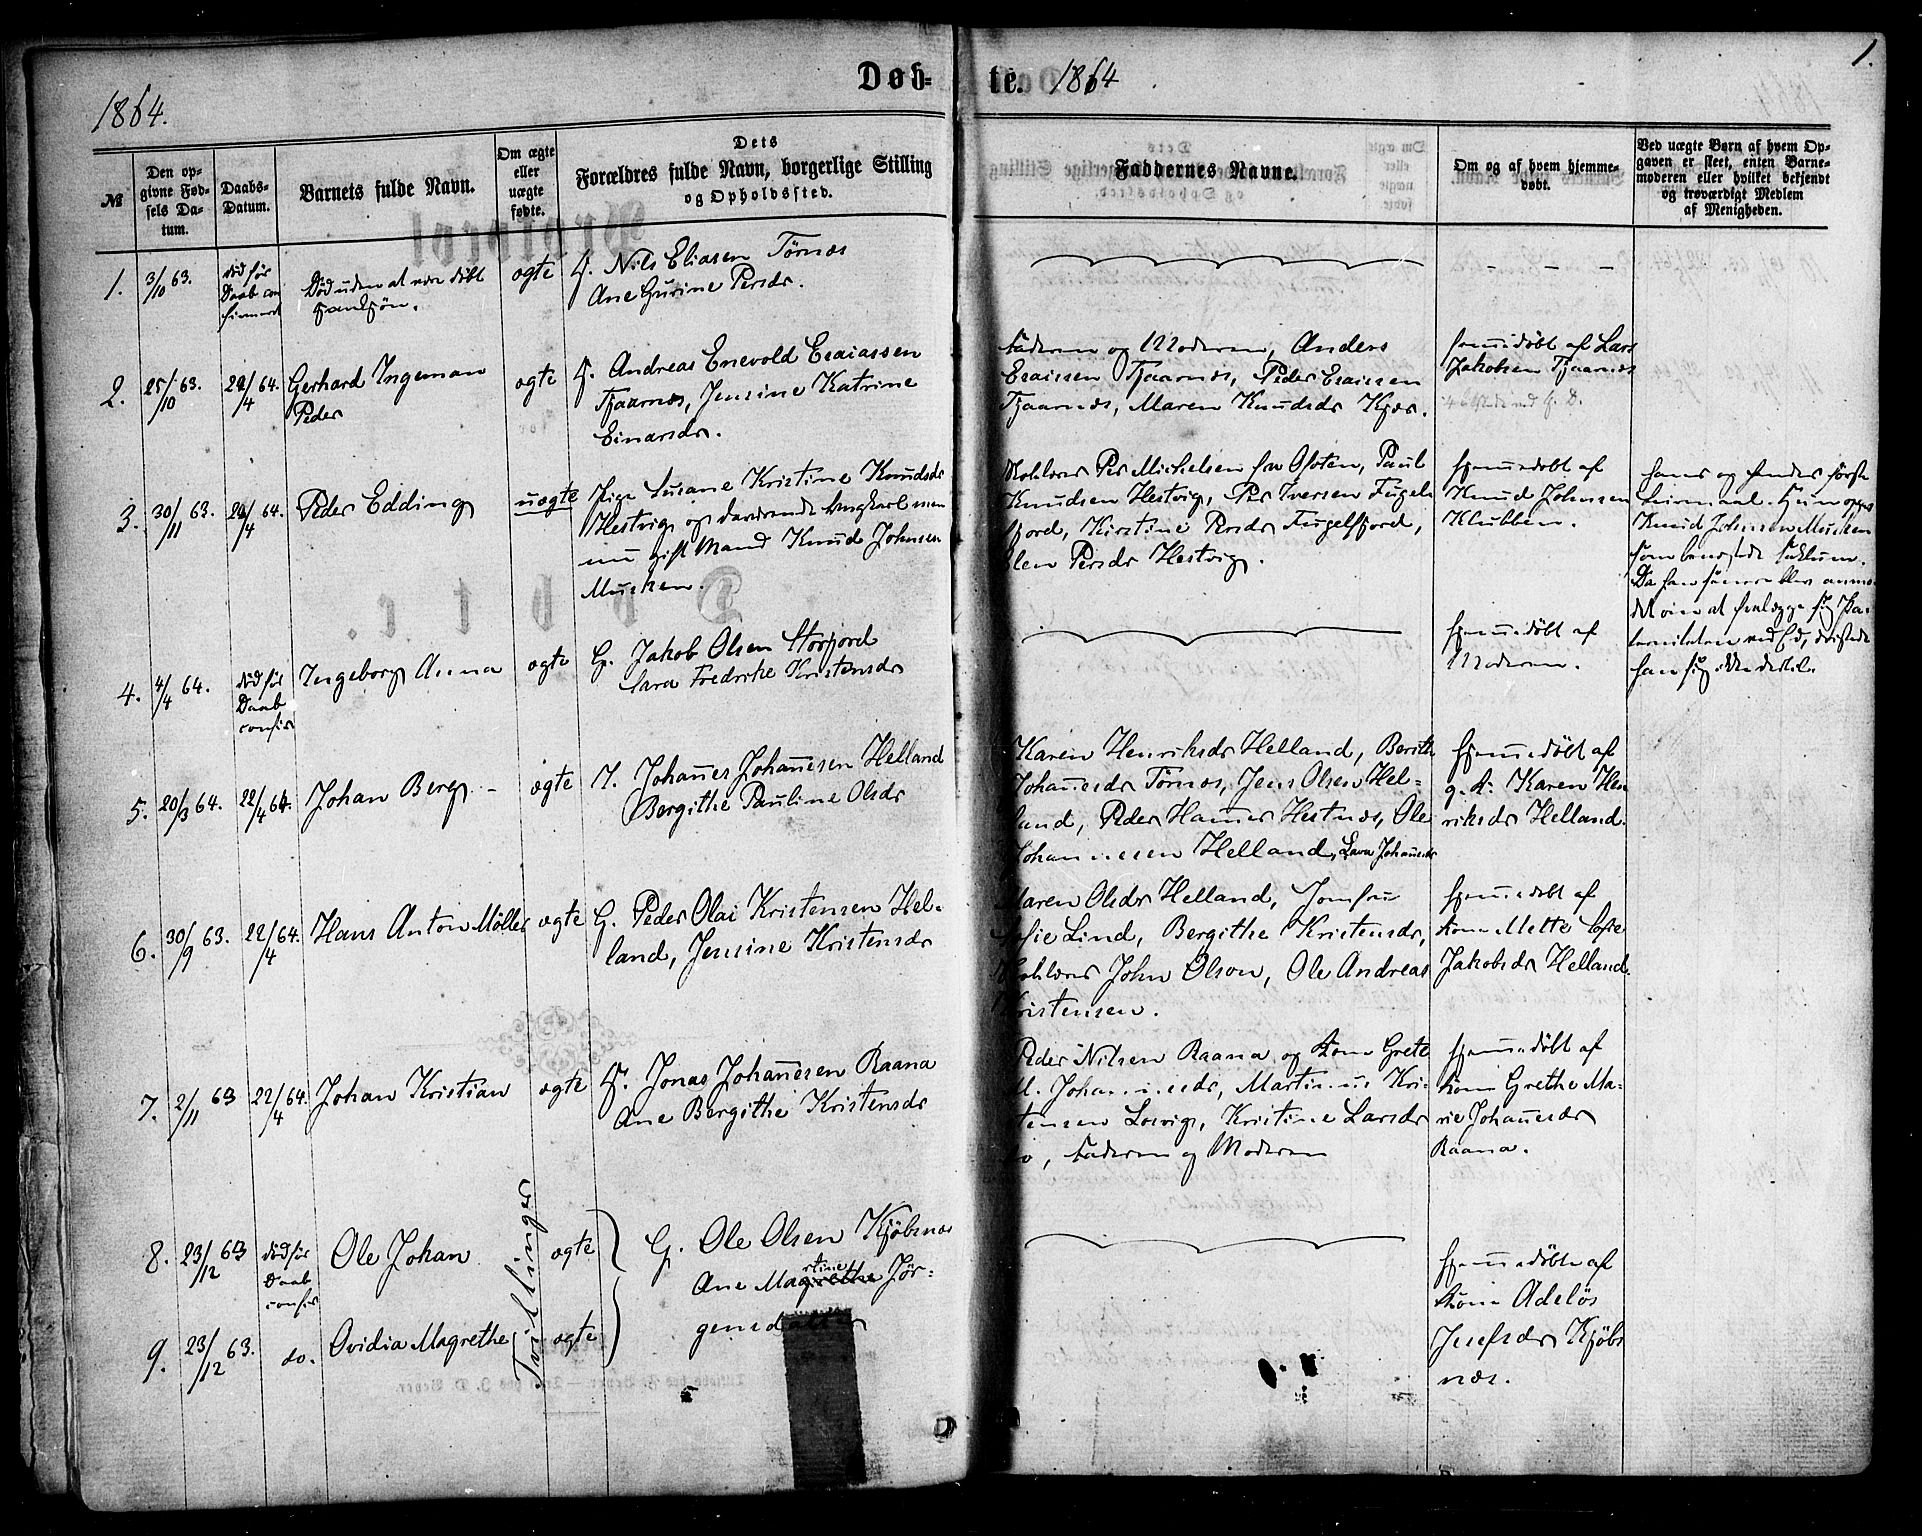 1.
Døb-
te. 1864
1864.
№
Den op-
givne Fød-
sels Da-
tum.
Daabs-
Datum.
Barnets fulde Navn.
Om ægte
eller
uægte
fødte.
Dets
Forældres fulde Navn, borgerlige Stilling
og Opholdssted.
Faddernes Navne.
Om og af hvem hjemme-
døbt.
Ved uægte Børn af hvem Op-
gaven er skeet, enten Barne-
moderen eller hvilket bekjendt
og troværdigt Medlem
af Menigheden.
1.
3/10 63.
død før
Daab
Død uden at være døbt
ægte
Nils Eliasen Törnæs
Ane Gurine Persdr.
2.
25/10 63.
22/4 64.
Gerhard Ingeman
Peder
ægte
Andreas Enevold Esaiassen
Tjaarnæs, Jensine Katrine
Einarsdr.
Faderen og Moderen, Anders
Esaissen Tjaarnæs, Peder Esaissen
Tjaarnæs, Maren Knudsdr Kjær.
hjemmedøbt af Lars
Jakobsen Tjaarnæs
3.
30/11 63.
22/4 64.
Peder Edding
uægte
Pige Susane Kristine Knudsdr
Hestvig og daværende Ungkarl men
nu gift Mand Knud Johnsen
Musken.
Kohlver Per Michelsen fra Ofoten, Paul
Knudsen Hestvig, Per Iversen Fugel-
fjord, Kirstine Persdr Fugelfjord,
Elen Persdr Hestvig.
hjemmedøbt af
Knud Johnsen
Klubben.
hans og hendes første
Leiermaal. Hun opgav
Knud Johnsen Musken
som benegtede Factum.
Da han senere blev anmo-
det om at fralægge sig Pa-
terniteten ved Ed, dristede
han sig ikke dertil.
4.
4/4 64.
død før
Daab
confir
Ingeborg Anna
ægte
G. Jakob Olsen Storfjord
Sara Fredrike Kristensdr
hjemmedøbt af
Moderen.
5.
20/3 64.
22/4 64.
Johan Berg -
ægte
I. Johannes Johannesen Helland
Bergithe Pauline Olsdr
Karen Henriksdr Helland, Berith
Johannesdr Törnæs, Jens Olsen Hel-
land, Peder Hammer Hestnæs, Ole
Johannesen Helland, Lava Johannesdr
hjemmedøbt af
g. K. Karen Hen
riksdr Helland.
6.
30/9 63.
22/4 64.
Hans Anton Möller
ægte
G. Peder Olai Kristensen Hel-
land, Jensine Kristensdr
Maren Olsdr Helland, Jomfru
Sofie Lind, Bergithe Kristensdr,
Kohlver John Olson, Ole Andreas
Kristensen.
hjemmedøbt af
Kone Mette Sofie
Jakobsdr Helland.
7.
2/11 63
22/4 64.
Johan Kristian
ægte
Jonas Johannesen Raana
Ane Bergithe Kristensdr
Peder Nilsen Raana og Kone Grete
M. Johannesdr, Martinus Kri-
stensen Losvig, Kristine Larsdr
Faderen og Moderen
hjemmedøbt af
Kone Grethe Ma-
rie Johannesdr
Raana.
8.
23/12 63
død før
Daab
confir
Ole Johan
Tvillinger
ægte
G. Ole Olsen Kjöbsnæs
Ane Martine Jör-
gensdatter
hjemmedøbte af
Kone Adelös
Josefsdr Kjöbs
næs.
9.
23/12 63.
do.
Ovidia Magrethe
ægte